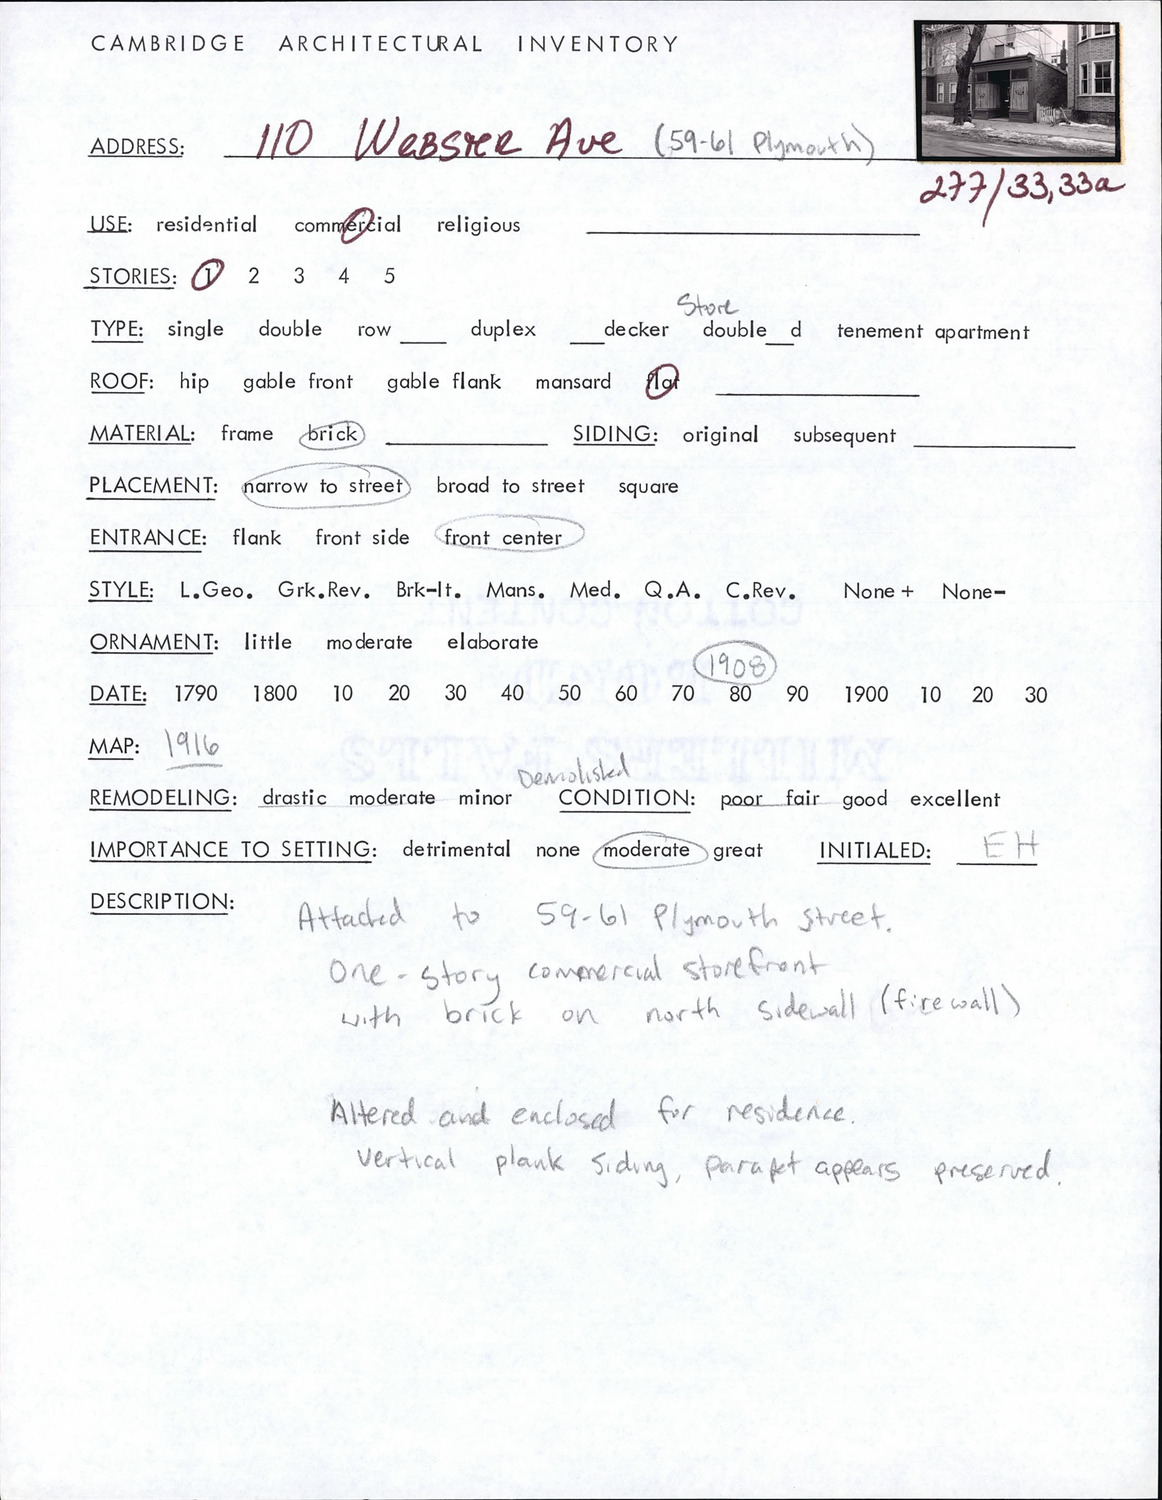 CAMBRIDGE ARCHITECTURAL INVENTORY
ADDRESS: 110 Webster Ave (59-61 Plymouth)
277/33,33a
USE: residential commercial religious
STORIES: 1 2 3 4 5
Store
TYPE: single double row ___ duplex ___decker double__d tenement apartment
ROOF: hip gable front gable flank mansard flat
MATERIAL: frame brick SIDING: original subsequent
PLACEMENT: narrow to street broad to street square
ENTRANCE: flank front side front center
STYLE: L.Geo. Grk.Rev. Brk-It. Mans. Med. Q.A. C.Rev. None+ None-
ORNAMENT: little moderate elaborate
1908
DATE: 1790 1800 10 20 30 40 50 60 70 80 90 1900 10 20 30
MAP: 1916
Demolished
REMODELING: drastic moderate minor CONDITION: poor fair good excellent
IMPORTANCE TO SETTING: detrimental none moderate great INITIALED: EH
DESCRIPTION: Attached to 59-61 Plymouth Street.
One-story commercial storefront
with brick on north sidewall (firewall)
Altered and enclosed for residence.
Vertical plank siding, parapet appears preserved.